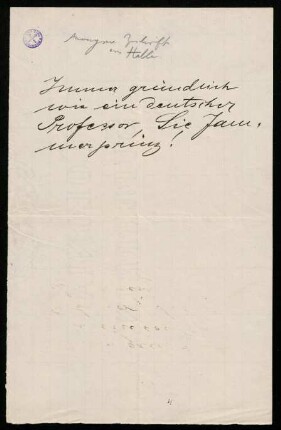 Anonyme Zuschrift
in Halle
Immer gründlich
wie ein deutscher
Professor, Sie Jam-
merprinz!